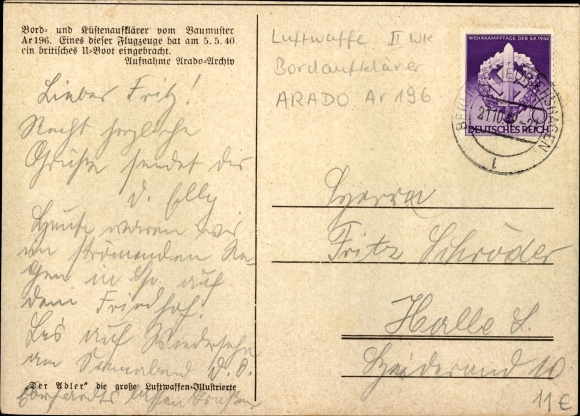 Bord- und Küstenaufklärer vom Baumuster
Ar 196. Eines dieser Flugzeuge hat am 5. 5. 40
ein britisches U-Boot eingebracht.
Aufnahme Arado-Archiv
Lieber Fritz!
Recht herzliche
Grüße sendet dir
d. Elly
Heute waren wir
im strömenden Re-
gen in auf
dem Friedhof.
Les auf Wiedersehn
am Sonnabend
"Der Adler" die große Luftwaffen-Illustrierte
Luftwaffe II WK
Bordaufklärer
ARADO Ar 196
WEHRKAMPFTAGE DER SA 1942
DEUTSCHES REICH
BERLIN
21.10.
Herrn
Fritz Schröder
Halle S.
Heiderand 10
11€